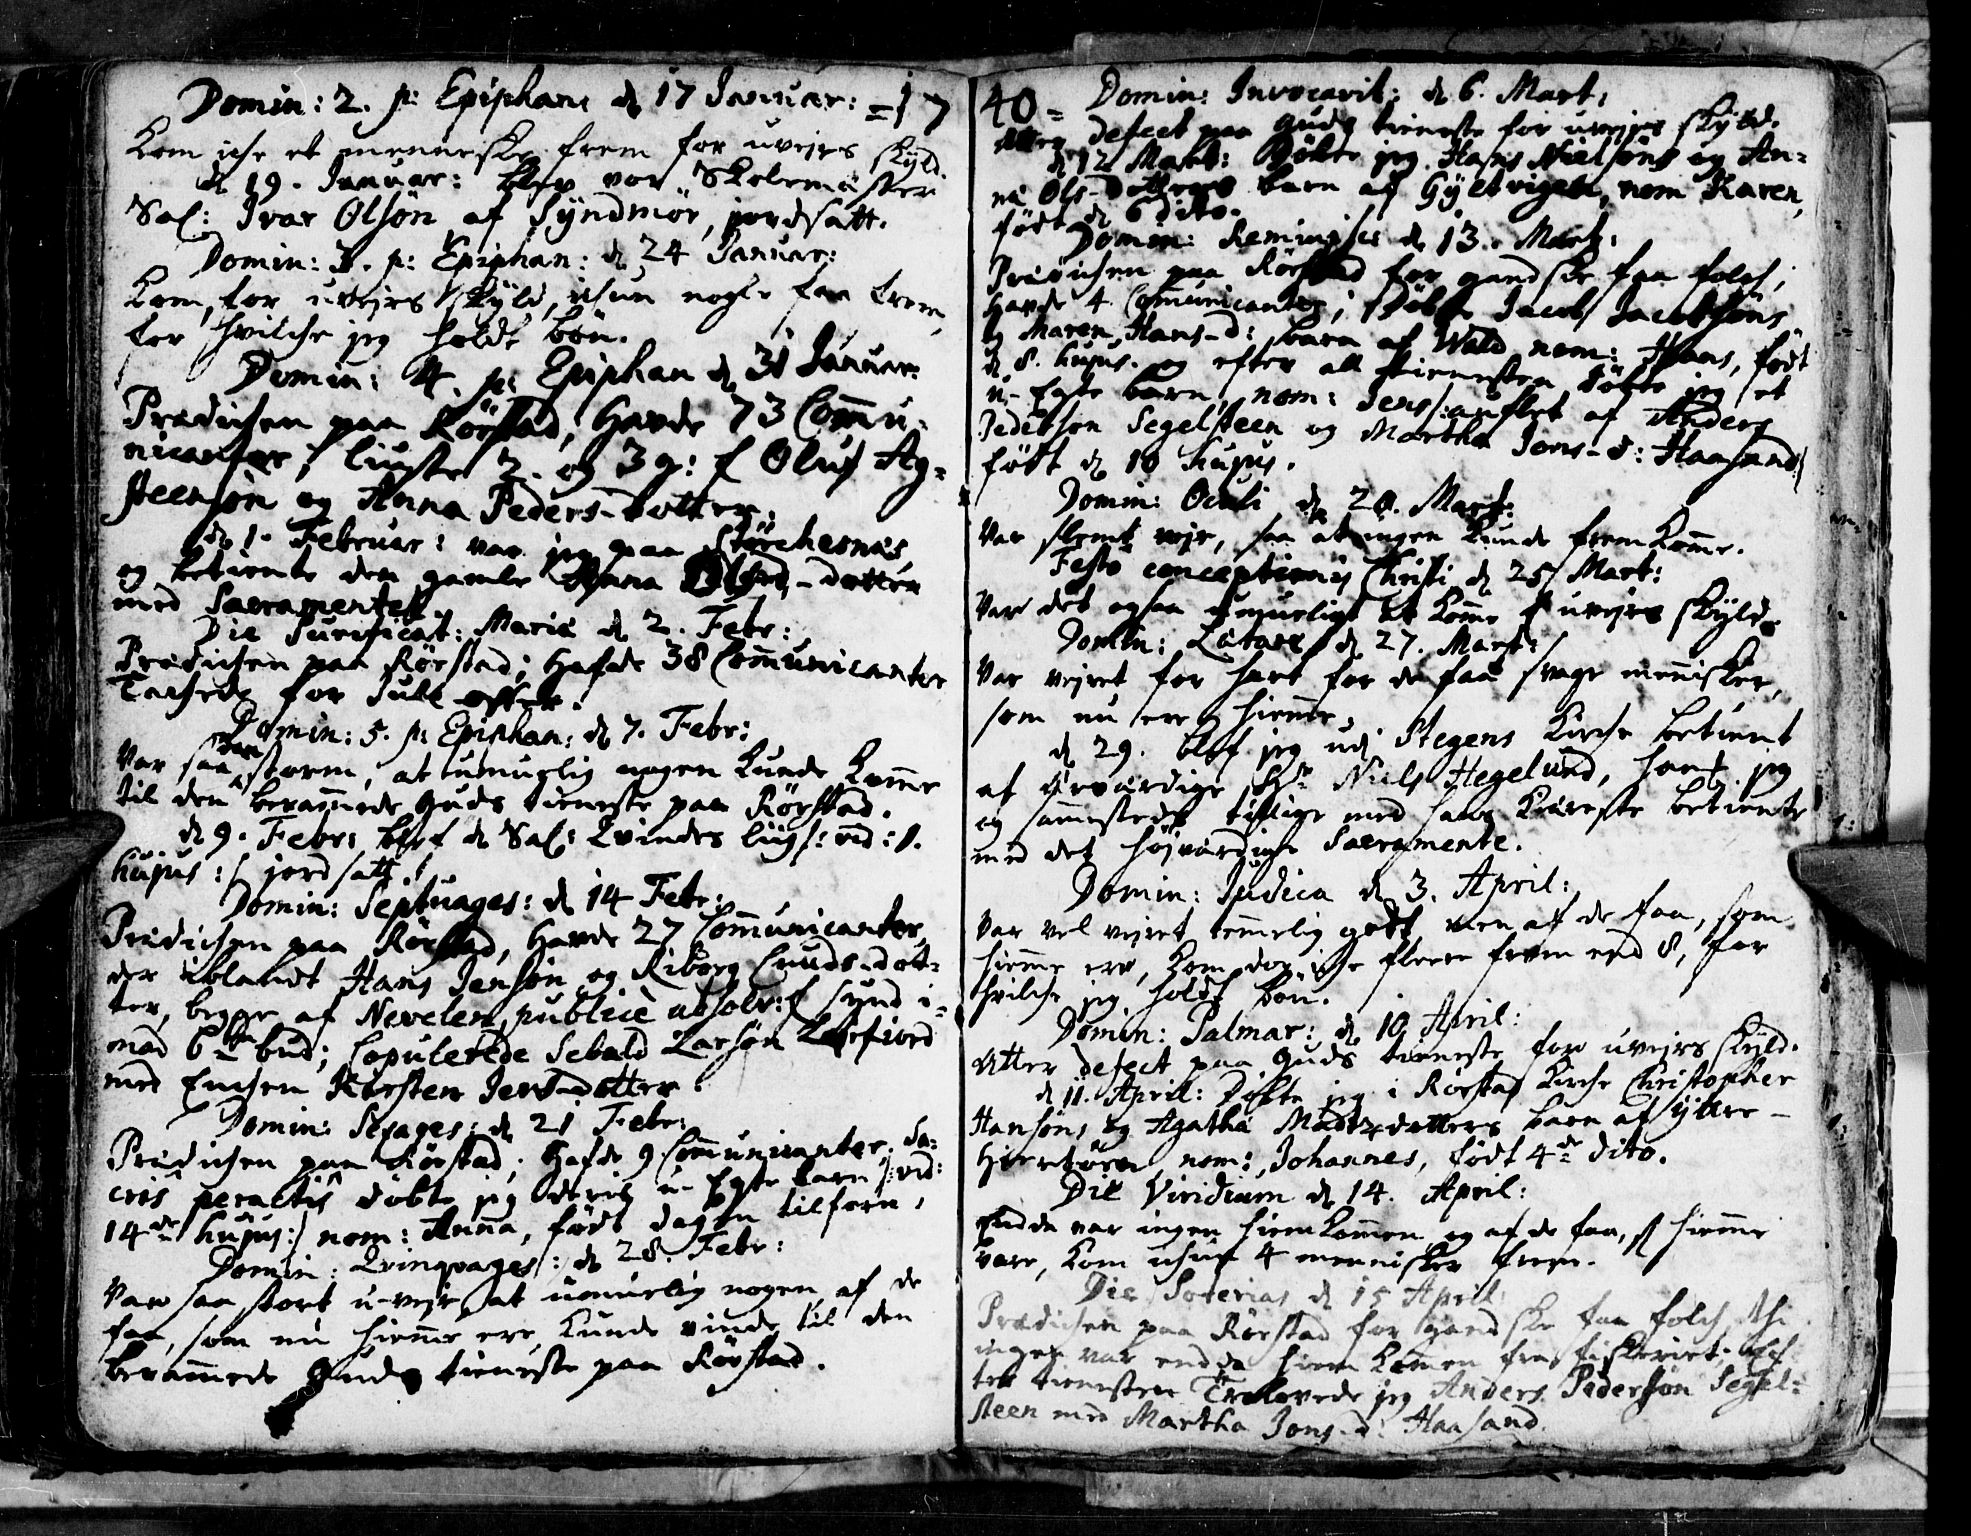 Domin: 2. p: Epiphan: d 17 Januar: =17
Kom iche et menneske frem for uvejrs skyld.
d 19. Januar: blev vor Skolemester
Sal: Ivar Olsön af Syndmör, jordsatt.
Domin: 3. p: Epiphan: d 24 Januar:
Kom, for uvejrs skyld, ichun nogle faa frem,
for hvilche jeg holdt bön.
Domin: 4. p: Epiphan d 31 Januar:
Prædichen paa Rörstad, Havde 73 Commu-
nicanter; liuste 2. og 3 g: f Oluf Ag-
steensön og Anna Peders-dotter.
d 1. Februar: var jeg paa Störchesnæs
og betiente den gamle Anna Olss-dotter
med Sacramentet.
Die Purificat: Mariæ d 2. Febr:
Prædichen paa Rörstad; Hafde 38 Communicanter
Tachede for Jule offer.
Domin: 5. p: Epiphan: d 7. Febr:
Var saadan storm, at umuelig nogen kunde komme
til den berammede Guds tieneste paa Rörstad.
d 9. Febr: blef d Sal: Qvindes liig /: vid: 1.
hujus :/ jordsatt.
Domin: Septuages: d 14 Febr:
Prædichen paa Rörstad, Havde 27 Communicanter,
der iblandt Hans Jensön og Riborg Cnuds-dot-
ter, begge af Nevelen, publicè absolv: f synd i-
mod 6te bud; Copulerede Sebald Larsön Leerfiord
med Enchen Kirsten Jens-dotter.
Domin: Sexages: d 21 Febr:
Prædichen paa Rörstad; Hafde 9 Communicanter. Sa-
cris peractis döbte jeg deris u-Egte barn /: vid:
14de hujus:/ nom: Anna, födt dagen tilforn.
Domin: Qvinqvages: d 28. Febr:
Var saa stort u-vejr, at umuelig nogen af de
faa, som nu hiemme ere, kunde vinde til den
berammede Guds tieneste paa Rörstad.
40= Domin: Invocavit: d 6. Mart:
Atter defect paa Guds tieneste for uvejrs skyld.
d 12 Mart: Döbte jeg Hans Nielsöns og An-
na Ols-dotters barn af Gyltvigen, nom Karen,
födt d 6 dito.
Domin: Reminisc: d 13. Mart:
Prædichen paa Rörstad for gandske faa folch;
Havde 4. Communicanter; Döbte Jacob Jacobsöns
og Maren Hans-d: barn af Wald nom: Hans, födt
d 8. hujus. og efter all tienesten döbte jeg et
u-Egte barn, nom: Jens /: auflet af Anders
Pedersön Segelsteen og Martha Jons-d: Haasand :/
födt d 10 hujus.
Domin: Oculi d 20. Mart:
Var slemt vejr, saa at ingen kunde fremkomme.
Festo conceptionis Christi d 25 Mart:
Var det ogsaa umueligt at komme f uvejrs skyld.
Domin: Lætare d 27. Mart:
Var vejret for hart for de faa svage mennisker,
som nu ere hiemme.
d 29. blef jeg udi Stegens Kirche betient
af ærværdige Hr Niels Hegelund, ham jeg
og sammesteds tillige med hans Kiereste betiente
med det højværdige Sacramente.
Domin: Judica d 3. April:
Var vel vejret temmelig gott, men af de faa, som
hiemme ere, kom dog iche fleere frem end 8, for
hvilche jeg holdt bön.
Domin: Palmar: d 10 April:
Atter defect paa Guds tieneste for uvejrs skyld.
d 11. April: Döbte jeg i Rörstad Kirche Christopher
Hansöns og Agatha Madtz-dotters barn af Yttre-
Hiertöen, nom: Johannes, födt 4de dito.
Die Viridium d 14. April:
Endda var ingen hiemkommen, og af de faa, s hiemme
vare, kom ichun 4 mennisker frem.
Die Soterias d 15 April:
Prædichen paa Rörstad for gandske faa folch, thi
ingen var endda hiem kommen fra fiskeriet; ef-
ter tienesten Trolovede jeg Anders Pedersön Segel-
steen med Martha Jons-d: Haasand.